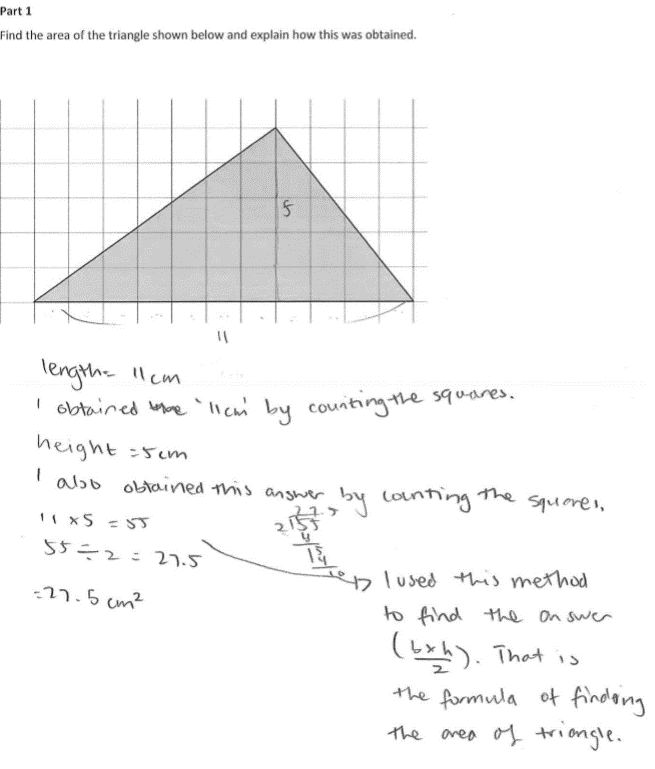 Part 1
Find the area of the triangle shown below and explain how this was obtained.
5
11
length = 11cm
I obtained "11cm" by counting the squares.
height = 5cm
I also obtained this answer by counting the squares,
11 x 5 = 55
55 ÷ 2 = 27.5
= 27.5 cm²
27.5
2 155
4
15
14
10
I used this method
to find the answer
(b×h/2). That is
the formula of finding
the area of triangle.